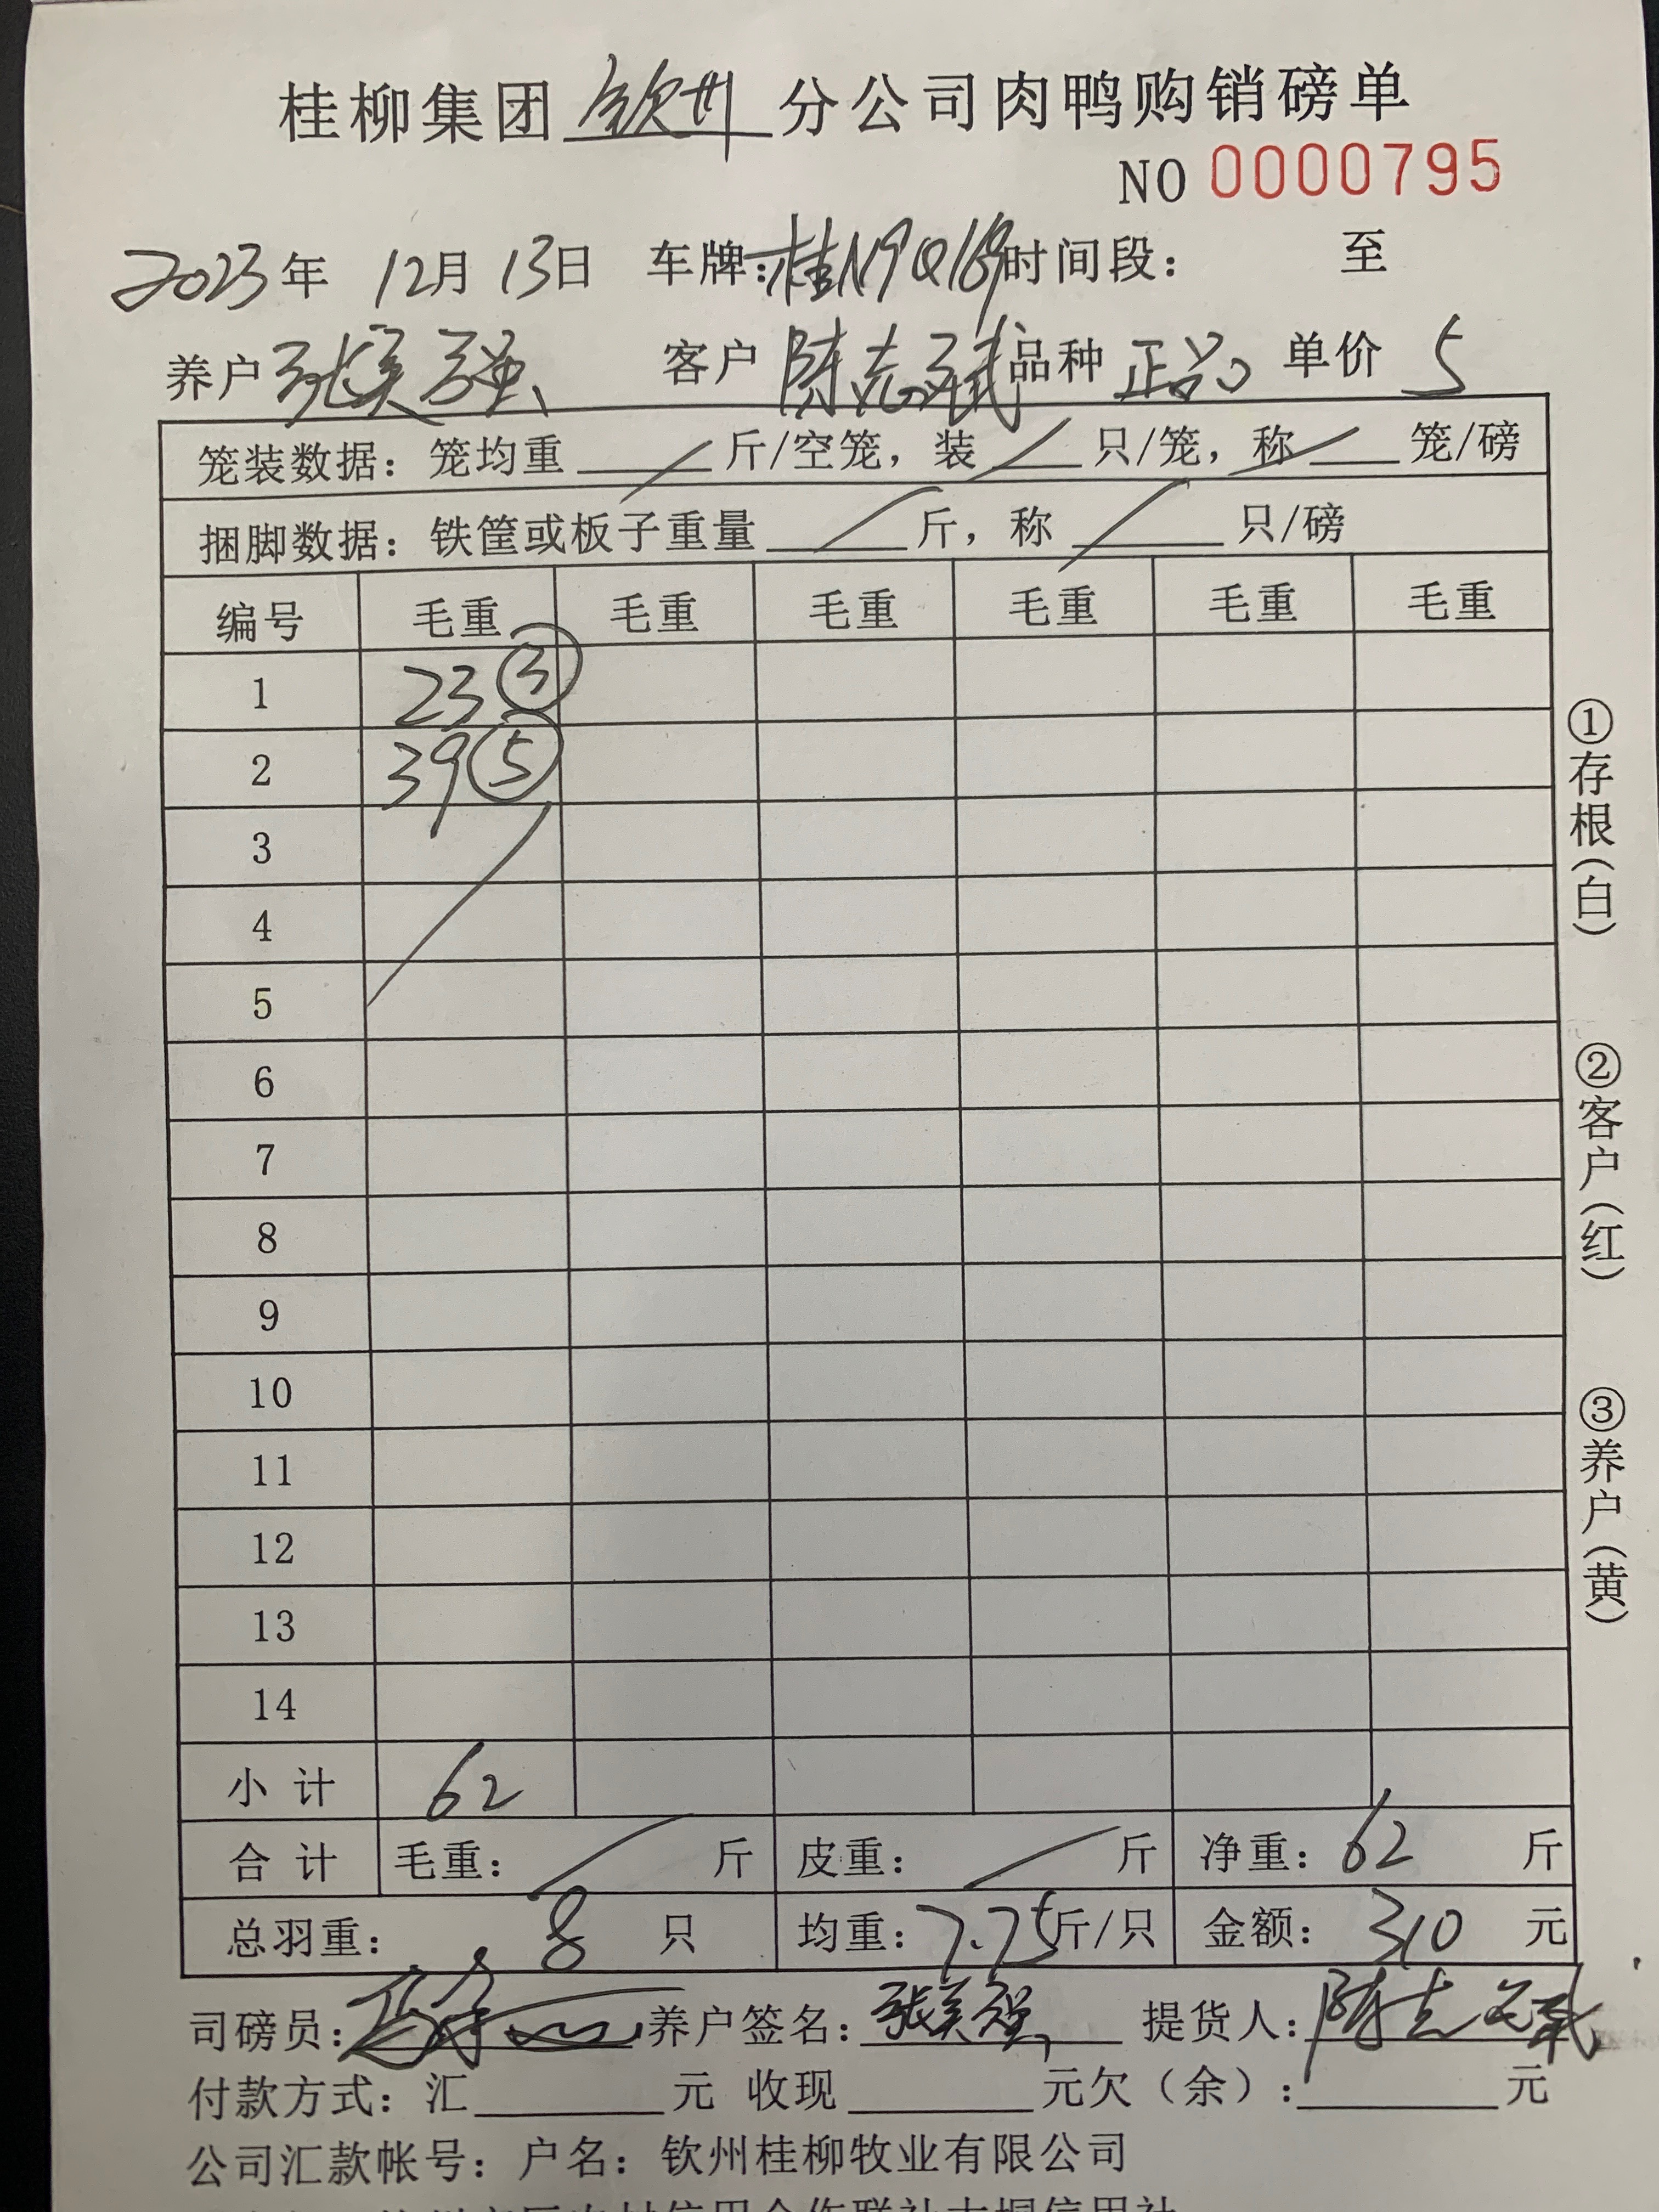 桂柳集团 钦州 分公司肉鸭购销磅单
NO 0000795
2023年 12月 13日 车牌:桂N9Q189 时间段: 至
养户 张美强 客户 陈志斌 品种 正品 单价 5
笼装数据: 笼均重 / 斤/空笼, 装 / 只/笼, 称 / 笼/磅
捆脚数据: 铁筐或板子重量 / 斤, 称 / 只/磅
编号 毛重 毛重 毛重 毛重 毛重 毛重
1 23 ③
2 39 ⑤
3
4
5
6
7
8
9
10
11
12
13
14
小计 62
合计 毛重: / 斤 皮重: / 斤 净重: 62 斤
总羽重: 8 只 均重: 7.75 斤/只 金额: 310 元
司磅员: 养户签名: 张美强 提货人: 陈志斌
付款方式: 汇______元 收现______元欠(余):______元
公司汇款帐号: 户名: 钦州桂柳牧业有限公司
①存根(白)
②客户(红)
③养户(黄)